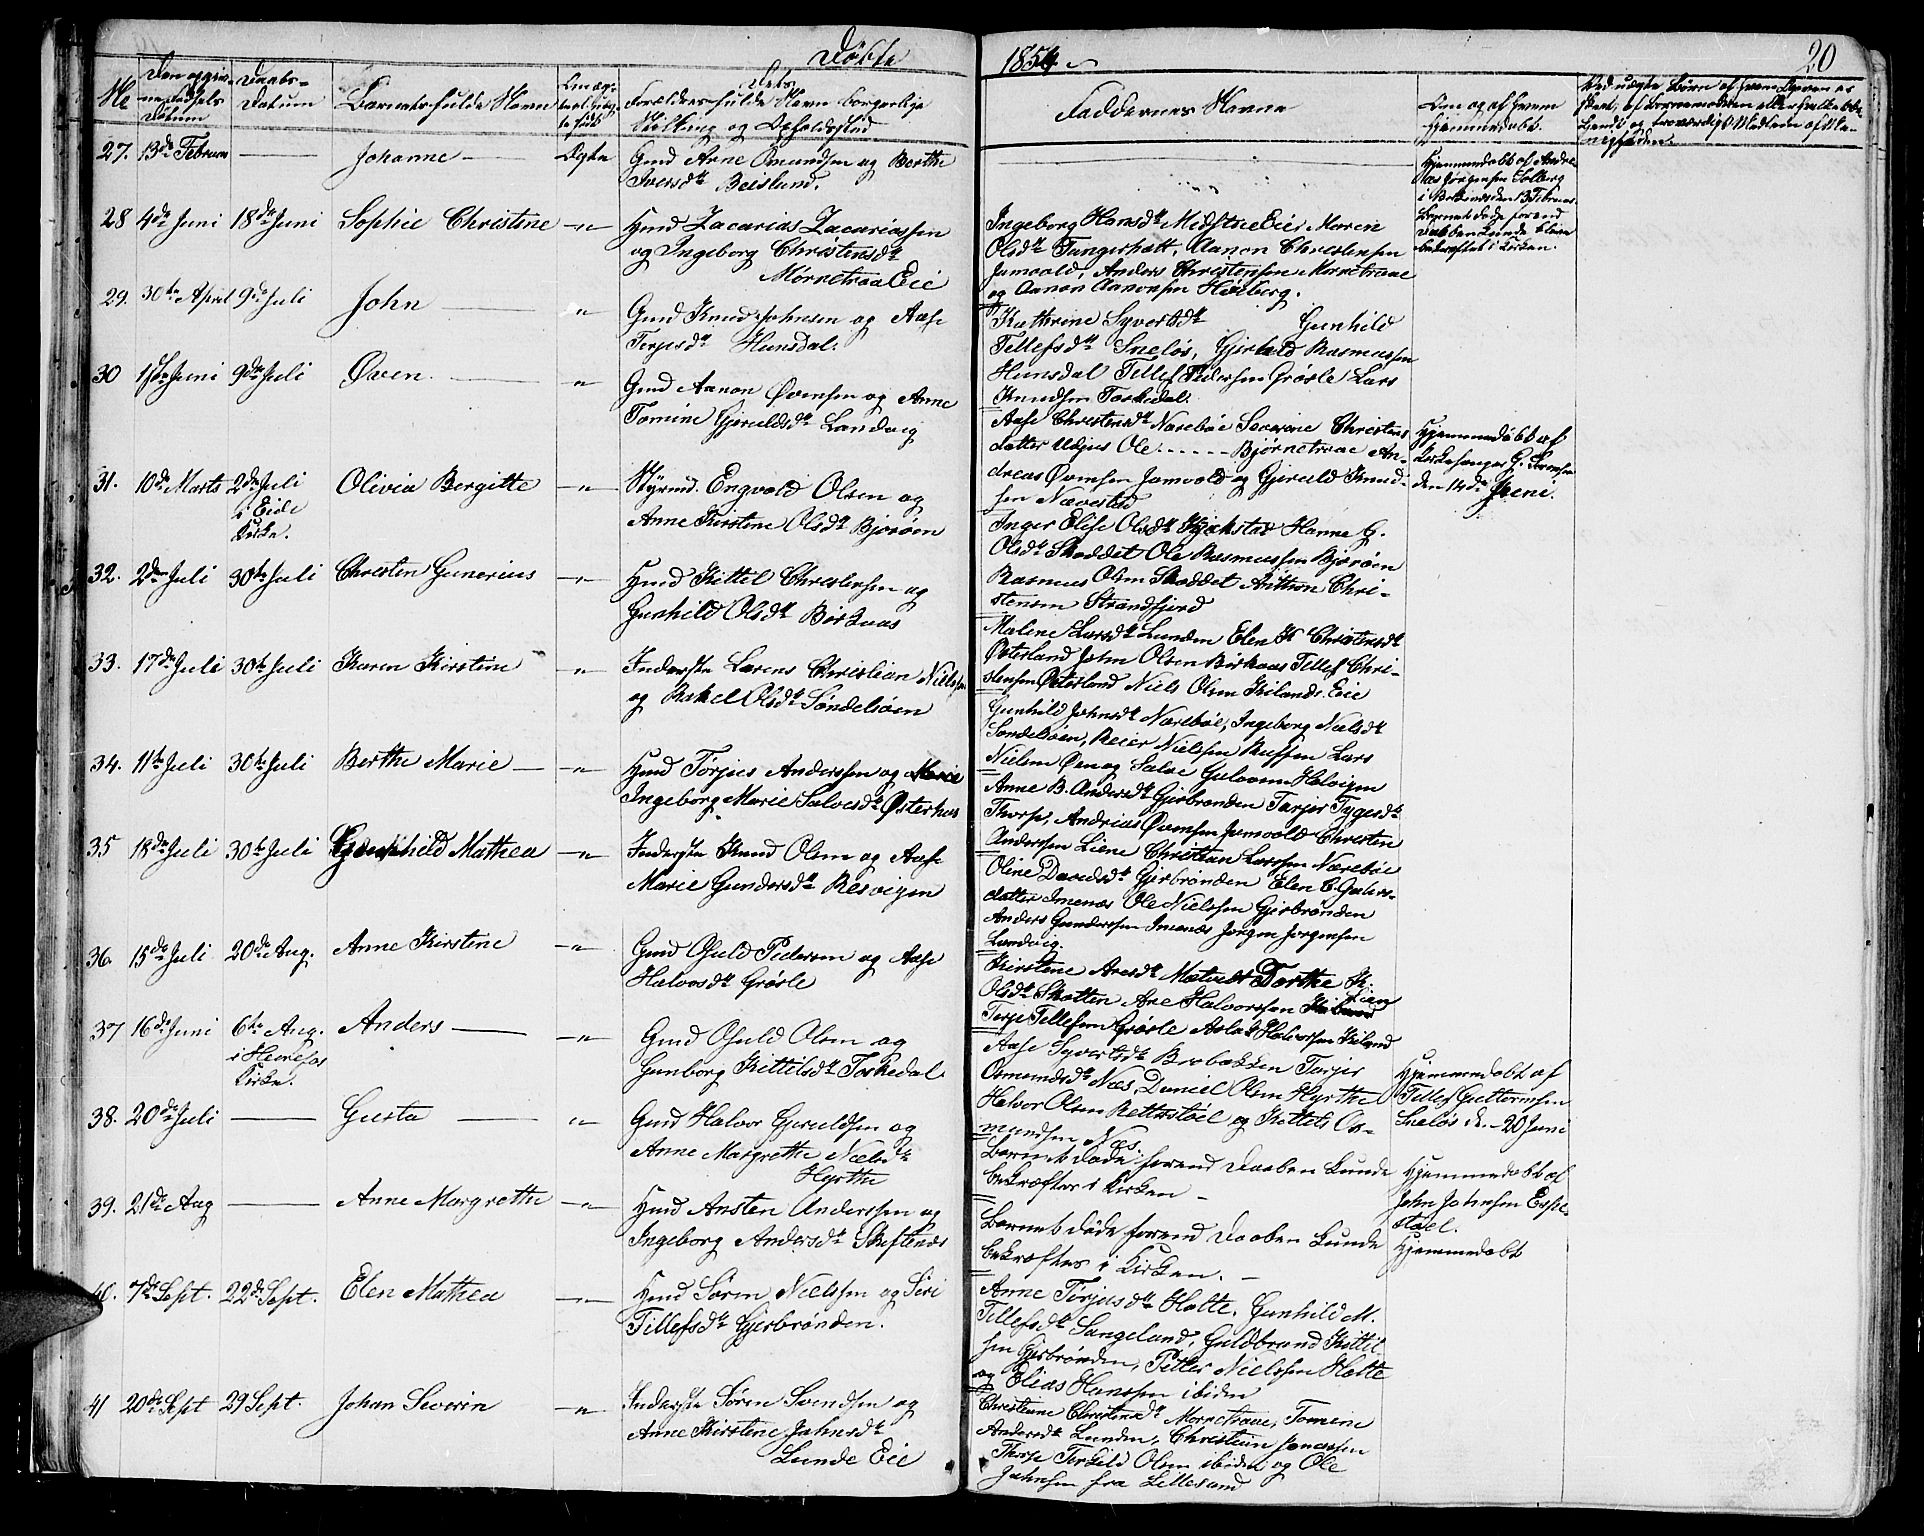 Døbte
1854
20
No
Den opgivne Fødsels Datum
Daabs-Datum
Barnets fulde Navn
Om ægte eller uægte født
Dets Forældres fulde Navn borgerlige Stilling og Opholdssted
Faddernes Navne
Om og af hvem hjemmedøbt.
27. 13de Februar — Johanne — Ægte
Gmd Arne Omundsen og Berthe
Iversdtr Beisland.
Hjemmedøbt af Andre-
as Jørgensen Solberg
Barnet døde forend
Daaben kunde blive
bekræftet i Kirken.
28 4de Juni 18de Juni Sophie Christine -"-
Hmd Zacarias Zacariassen
og Ingeborg Christensdtr
Mørnetraa Eie
Ingeborg Hansdtr Midstue Eie, Maren
Olsdtr Tungerhatt, Aanon Christensen
Jamvold, Anders Christensen Mørnetraae
og Aanon Aanonsen Høiberg.
29. 30te April 9de Juli John — "
Gmd Knud Johnsen og Aase
Terjesdtr Hunsdal.
Kathrine Syvertsdtr Gunhild
Tellefsdtr Sneløs, Gjeruld Rasmussen
Hunsdal Tellef Pedersen Grøsle Lars
Knudsen Toskedal.
30 1ste Juni 9de Juli Øven. — "
Gmd Aanon Øvensen og Anne
Tomine Gjeruldsdtr Landvig
Aase Christensdtr Narebøe Severine Christens
datter Udjus Ole - - - - - Bjørnetraae An-
dreas Øvensen Jamvold og Gjeruld Knud-
sen Nævestad
Hjemmedøbt af
Kirkesanger G.
den 14de Juni.
31. 10de Marts 2den Juli
i Eide
Kirke.
Olivia Bergitte -"-
Styrmd. Engvald Olsen og
Anne Kirstine Olsdtr Bjorøen
Inger Elise Olsdtr Kjækstad Hanne G.
Olsdtr Skaddet Ole Rasmussen Bjorøen
Rasmus Olsen Skaddet Anthon Chri-
stensen Strandfjord
32. 2den Juli 30te Juli Christen Gunerius -"-
Hmd Kittil Christensen og
Gunhild Olsdtr Birkaas
Malene Larsdtr Lunden Elen K Christensdtr
Østerland John Olsen Birkaas Tellef Chri-
stensen Østerland Niels Olsen Kilands Eie
33. 17de Juli 30te Juli Karen Kirstine "
Inderste Larens Christian Nielsen
og Rakel Olsdtr Søndeløen
Gunhild Johnsdtr Narebøe, Ingeborg Nielsdtr
Søndeløen, Reier Nielsen Ruffen Lars
Nielsen Øen og Salve Gulovsen Halvigen
34. 11te Juli 30te Juli Berthe Marie — -"-
Hmd Torjus Anderssen og Marie
Ingeborg Marie Salvesdtr Østerhus
Anne B. Andersdtr Gjerbrønden Torjer Tygesdtr
Thorse, Andrias Øvensen Jamvold Christen
Anderssen Liene Christian Larssen Narebøe
35 18de Juli 30te Juli Gunhild Mathea -"-
Inderste Knud Olsen og Aase
Marie Gundersdtr Resvigen
Oline Davidsdtr Gjerbrønden Elen C. Gunders-
datter Imenæs Ole Nielssen Gjerbrønden
Anders Gundersen Imenæs Jorgen Jorgensen
Landvig.
36. 15de Juli 20de Aug. Anne Kirstine -"-
Gmd Osuld Pedersen og Aase
Halvorsdtr Grøsle
Kirstine Aresdtr Mætvedt Dorthe K.
Olsdtr Skatten Are Halvorssen Lien
Terje Tellefsen Grøsle Aslak Halvorssen Kiland
37 16de Juni 6te Aug.
i Herefos
Kirke.
Anders — -"-
Gmd Osuld Olsen og
Gunborg Kittilsdtr Toskedal
Aase Syvertsdtr Brobakken Torjer
Osmundsdtr Næs, Daniel Olsen Hyrthe
Halvor Olsen Retterstøel og Kittels Os-
mundsen Næs.
Hjemmedøbt af
Tellef Guttormsen
Sneløs d. 20 Juni
38. 20de Juli — Gusta — "
Gmd Halvor Gjeruldsen og
Anne Margrethe Nielsdtr
Hyrthe
Barnet døde forend Daaben kunde
bekræftes i Kirken —
Hjemmedøbt af
John Johnsen Espe-
støel.
39. 21de Aug — Anne Margrethe -"-
Hmd Ansten Anderssen og
Ingeborg Andersdtr Skiftenæs
Barnet døde forend Daaben kunde
bekræftes i Kirken. —
Hjemmedøbt
40. 7de Sept. 22de Sept. Elen Mathea -"-
Hmd Søren Nielssen og Siri
Tillefsdtr Gjerbrønden.
Anne Torjusdtr Hatte, Gunhild M.
Tillefsdtr Sangeland, Guldbrand Kittil-
sen Gjerbrønden, Petter Nielssen Hatte
og Elias Hanssen ibiden
41 20de Sept 29 Sept. Johan Severin -"-
Inderste Søren Svendsen og
Anne Kirstine Johnsdtr
Lunde Eie
Christiane Christensdtr Mørnetraae, Tomine
Andersdtr Lunden, Christian Jonassen
Thorse Terkild Olsen ibiden og Ole
Johnsen fra Lillesand